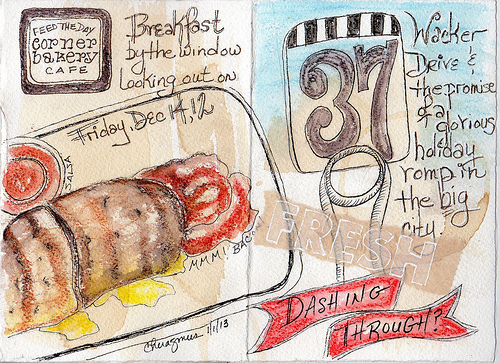 FEED THE DAY
corner
bakery
CAFE
Breakfast
by the window
looking out on
Friday, Dec 14, 12
SALSA
MMM! BACON
1/1/13
37
Wacker
Drive &
the promise
of a
glorious
holiday
romp in
the big
city.
FRESH
DASHING
THROUGH?